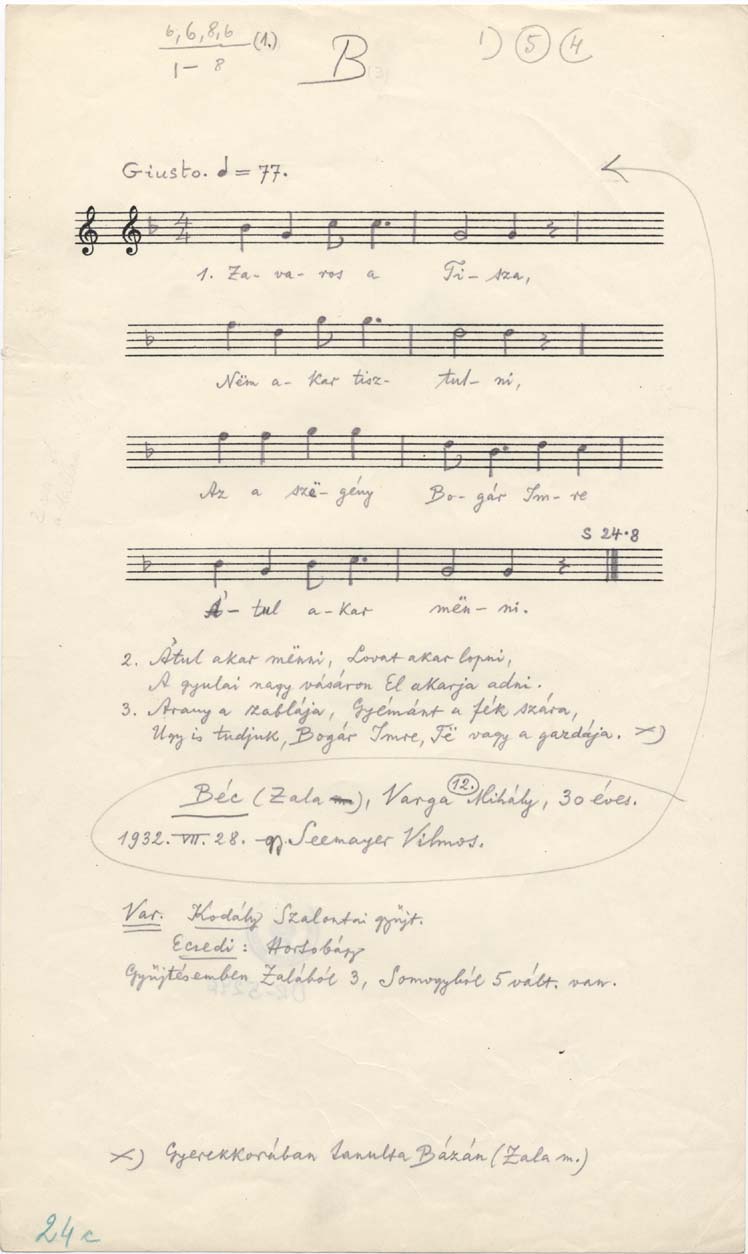 6, 6, 8, 6 (1.)
1 – 8
B
1) 5 4
Giusto. 𝅗𝅥 = 77.
4
4
1. Za- va- ros a Ti- sza,
Nëm a- kar tisz- tul- ni,
Az a szë- gény Bo- gár Im- re
S 24.8
Á- tul a- kar mën- ni.
2. Átul akar mënni, Lovat akar lopni,
A gyulai nagy vásáron El akarja adni.
3. Arany a zablája, Gyémánt a fék szára,
Ugy is tudjuk, Bogár Imre, Të vagy a gazdája. x)
12.
Béc (Zala m), Varga Mihály, 30 éves.
1932. VII. 28. gy Seemayer Vilmos.
Var. Kodály Szalontai gyűjt.
Ecsedi: Hortobágy
Gyűjtésemben Zalából 3, Somogyból 5 vált. van.
x) Gyerekkorában tanulta Bázán (Zala m.)
24 c